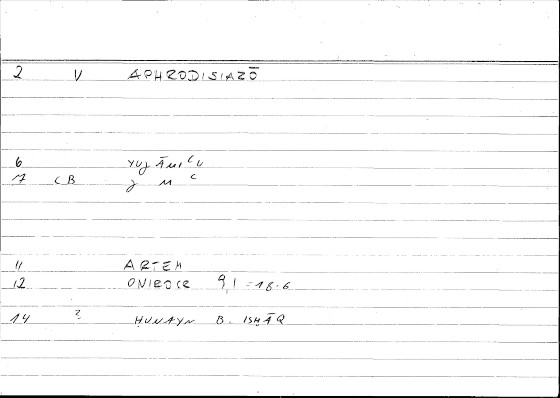 2 V APHRODISIAZŌ
6 yuǧāmiʿu
7 CB ǧ m ʿ
11 ARTEM
12 ONIROCR 9,1 = 18.6
14 ? HUNAYN B. ISHĀQ